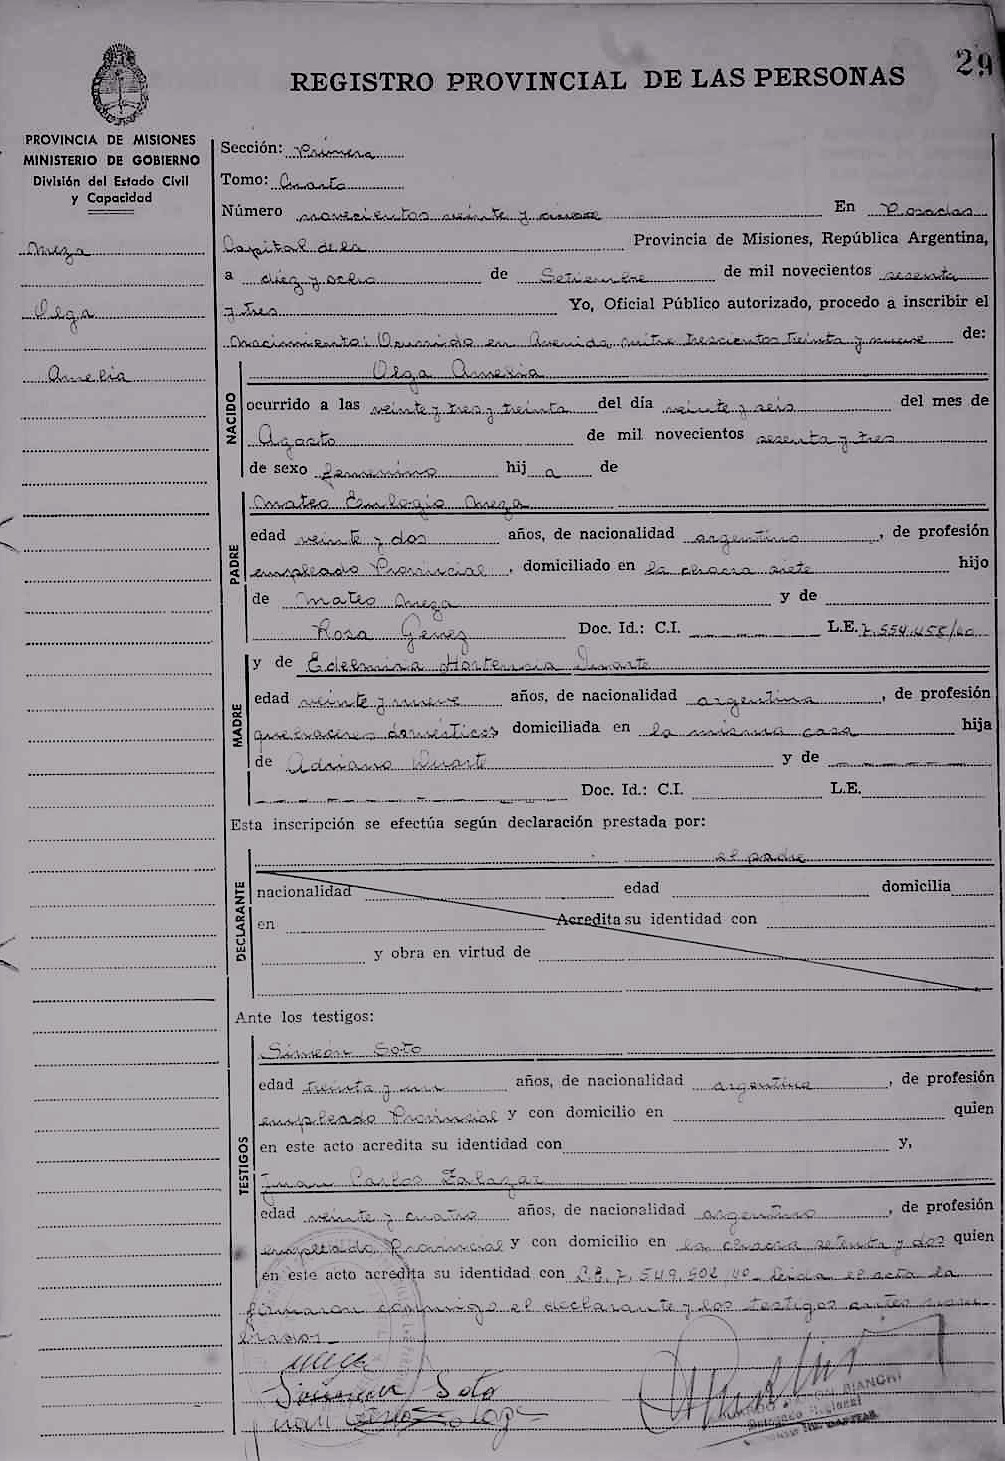 29
REGISTRO PROVINCIAL DE LAS PERSONAS
PROVINCIA DE MISIONES
MINISTERIO DE GOBIERNO
División del Estado Civil
y Capacidad
Meza
Olga
Amelia
Sección: Primera
Tomo: Cuarto
Número novecientos veinte y En Posadas
Capital de la Provincia de Misiones, República Argentina,
a diez y ocho de Setiembre de mil novecientos sesenta
y tres Yo, Oficial Público autorizado, procedo a inscribir el
Nacimiento: Ocurrido en Avenida mitre trescientos treinta y nueve de:
NACIDO
Olga Amelia
ocurrido a las veinte y tres y treinta del día veinte y seis del mes de
Agosto de mil novecientos sesenta y tres
de sexo femenino hij a de
PADRE
Mateo Eulogio Meza
edad veinte y dos años, de nacionalidad argentino, de profesión
empleado Provincial, domiciliado en la chacra siete hijo
de Mateo Meza y de
Rosa Genez Doc. Id.: C.I. L.E. 7.554.458/60
MADRE
y de Edelmira Hortencia Duarte
edad veinte y nueve años, de nacionalidad argentina, de profesión
quehaceres domésticos domiciliada en la misma casa hija
de Adriano Duarte y de
Doc. Id.: C.I. L.E.
Esta inscripción se efectúa según declaración prestada por:
DECLARANTE
el padre
nacionalidad edad domicilia
en Acredita su identidad con
y obra en virtud de
Ante los testigos:
TESTIGOS
Simeón Soto
edad treinta y un años, de nacionalidad argentino, de profesión
empleado Provincial y con domicilio en quien
en este acto acredita su identidad con y,
Juan Carlos Zalazar
edad veinte y cuatro años, de nacionalidad argentino, de profesión
empleado Provincial y con domicilio en la chacra setenta y dos quien
en este acto acredita su identidad con 7.549.502 leida el acta la
firmaron conmigo el declarante y los testigos antes nom
brados
Meza
Simeon Soto
Juan Carlos Zalazar
BIANCHI